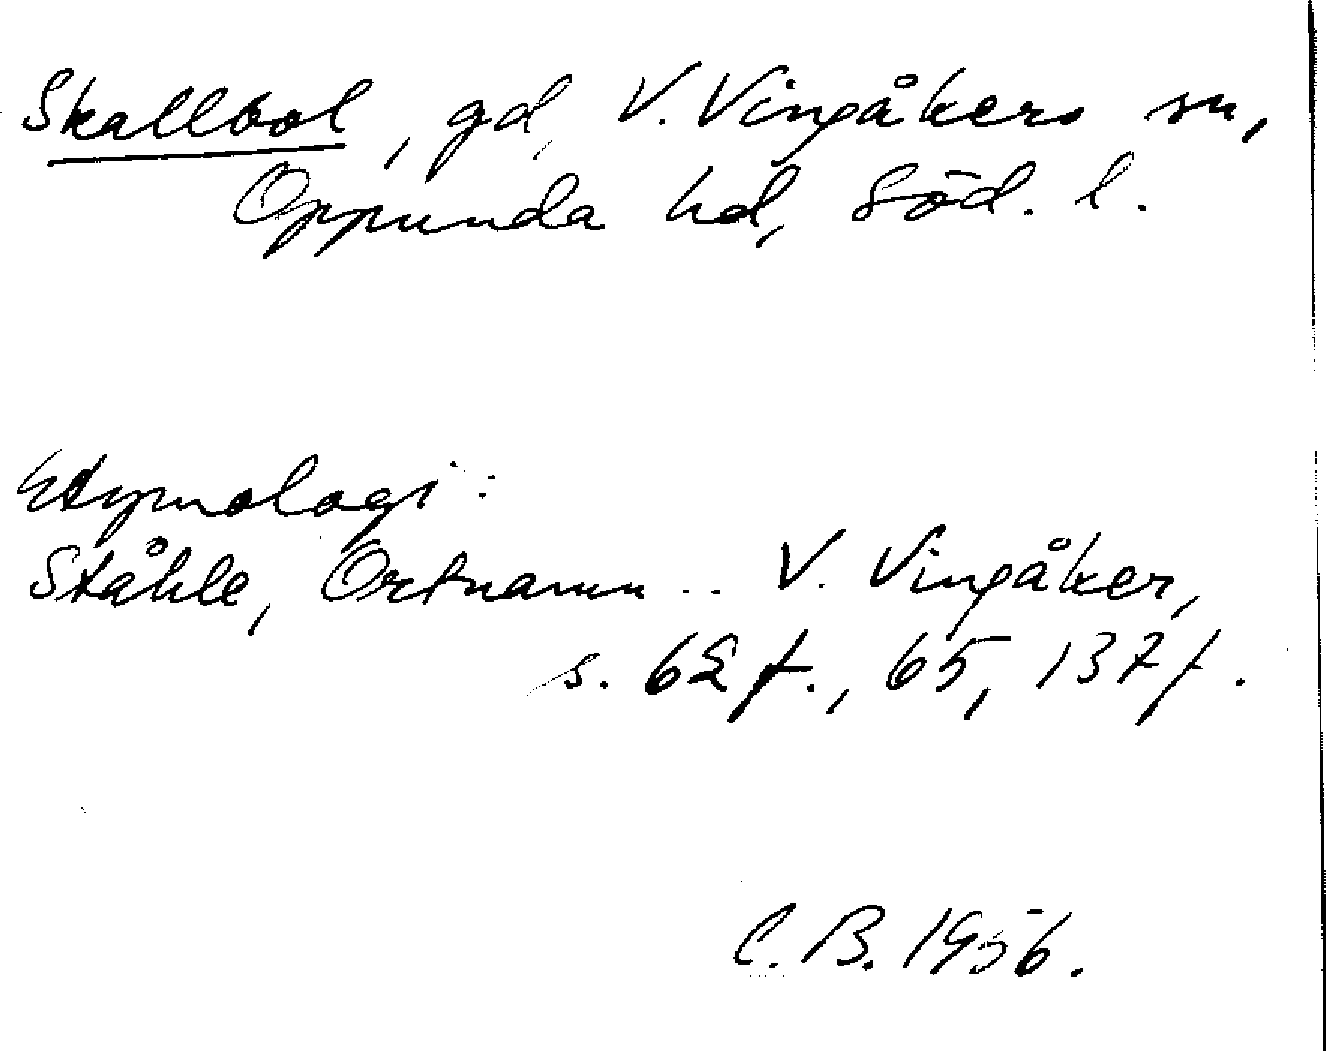 Skallbol, gd, V. Vingåkers sn,
Oppunda hd, Söd. l.
Etymologi:
Ståhle, Ortnamn .. V. Vingåker,
s. 62 f., 65, 137 f.
C. B. 1956.